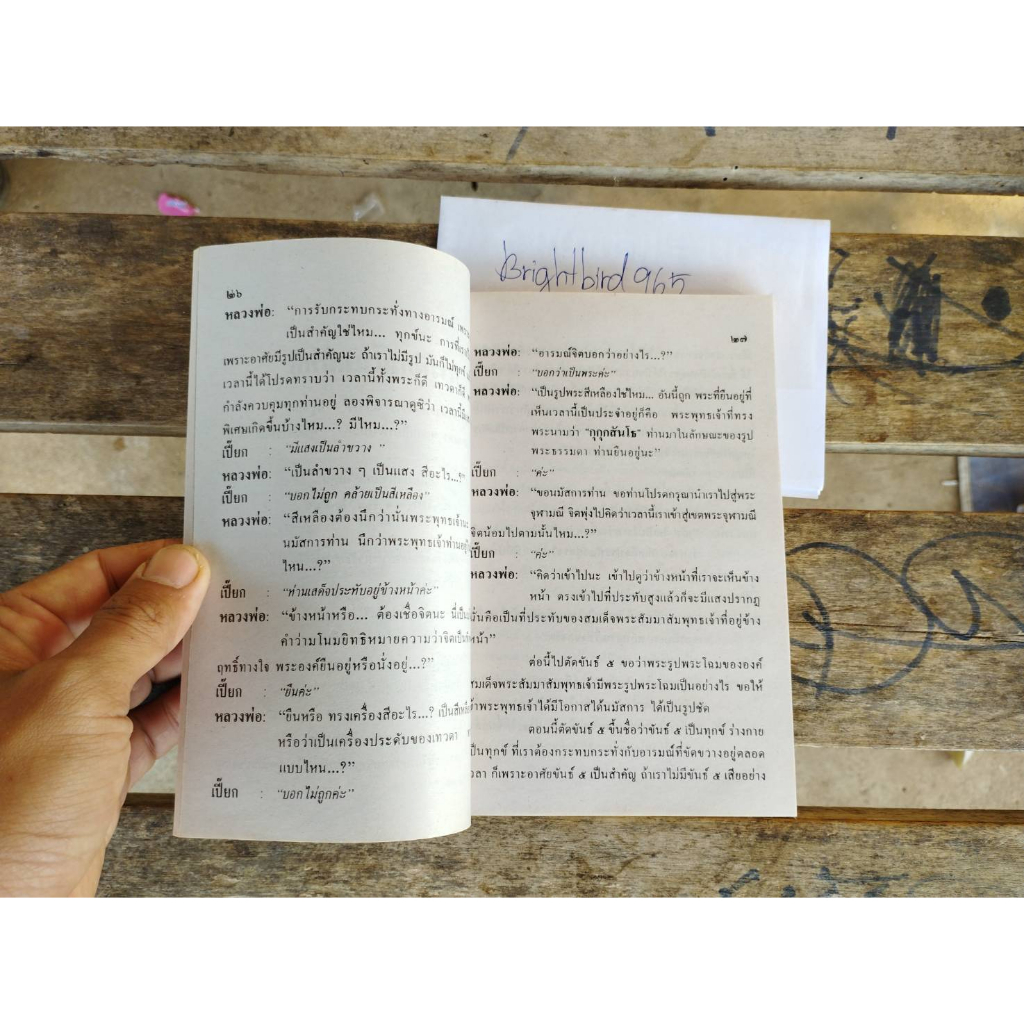 Brightbird965
๒๖
หลวงพ่อ: “การรับกระทบกระทั่งทางอารมณ์
เป็นสำคัญใช่ไหม... ทุกข์นะ
เพราะอาศัยมีรูปเป็นสำคัญนะ ถ้าเราไม่มีรูป มันก็ไม่ทุกข์
เวลานี้ได้โปรดทราบว่า เวลานี้ทั้งพระก็ดี
กำลังควบคุมทุกท่านอยู่ ลองพิจารณาดูซิว่า
พิเศษเกิดขึ้นบ้างไหม...? มีไหม...?”
เปี๊ยก : “มีแสงเป็นลำขวาง”
หลวงพ่อ: “เป็นลำขวาง ๆ เป็นแสง สีอะไร...?”
เปี๊ยก : “บอกไม่ถูก คล้ายเป็นสีเหลือง”
หลวงพ่อ: “สีเหลืองต้องนึกว่านั่นพระพุทธเจ้า
นมัสการท่าน นึกว่าพระพุทธเจ้าท่าน
ไหน...?”
เปี๊ยก : “ท่านเสด็จประทับอยู่ข้างหน้าค่ะ”
หลวงพ่อ: “ข้างหน้าหรือ... ต้องเชื่อจิตนะ
คำว่ามโนมยิทธิหมายความว่าจิต
ฤทธิ์ทางใจ พระองค์ยืนอยู่หรือนั่งอยู่...?”
เปี๊ยก : “ยืนค่ะ”
หลวงพ่อ: “ยืนหรือ ทรงเครื่องสีอะไร...?
หรือว่าเป็นเครื่องประดับของเทวดา
แบบไหน...?”
เปี๊ยก : “บอกไม่ถูกค่ะ”
๒๗
หลวงพ่อ: “อารมณ์จิตบอกว่าอย่างไร...?”
เปี๊ยก : “บอกว่าเป็นพระค่ะ”
หลวงพ่อ: “เป็นรูปพระสีเหลืองใช่ไหม... อันนี้ถูก พระที่ยืนอยู่ที่
เห็นเวลานี้เป็นประจำอยู่ก็คือ พระพุทธเจ้าที่ทรง
พระนามว่า “กุกุกสันโธ” ท่านมาในลักษณะของรูป
พระธรรมดา ท่านยืนอยู่นะ”
เปี๊ยก : “ค่ะ”
หลวงพ่อ: “ขอนมัสการท่าน ขอท่านโปรดกรุณานำเราไปสู่พระ
จุฬามณี จิตพุ่งไปคิดว่าเวลานี้เราเข้าสู่เขตพระจุฬามณี
จิตน้อมไปตามนั้นไหม...?”
เปี๊ยก : “ค่ะ”
หลวงพ่อ: “คิดว่าเข้าไปนะ เข้าไปดูว่าข้างหน้าที่เราจะเห็นข้าง
หน้า ตรงเข้าไปที่ประทับสูงแล้วก็จะมีแสงปรากฏ
นั่นคือเป็นที่ประทับของสมเด็จพระสัมมาสัมพุทธเจ้าที่อยู่ข้าง
หน้า”
ต่อนี้ไปตัดขันธ์ ๕ ขอว่าพระรูปพระโฉมขององค์
สมเด็จพระสัมมาสัมพุทธเจ้ามีพระรูปพระโฉมเป็นอย่างไร ขอให้
ข้าพระพุทธเจ้าได้มีโอกาสได้นมัสการ ได้เป็นรูปชัด
ตอนนี้ตัดขันธ์ ๕ ขึ้นชื่อว่าขันธ์ ๕ เป็นทุกข์ ร่างกาย
เป็นทุกข์ ที่เราต้องกระทบกระทั่งกับอารมณ์ที่ขัดขวางอยู่ตลอด
เวลา ก็เพราะอาศัยขันธ์ ๕ เป็นสำคัญ ถ้าเราไม่มีขันธ์ ๕ เสียอย่าง